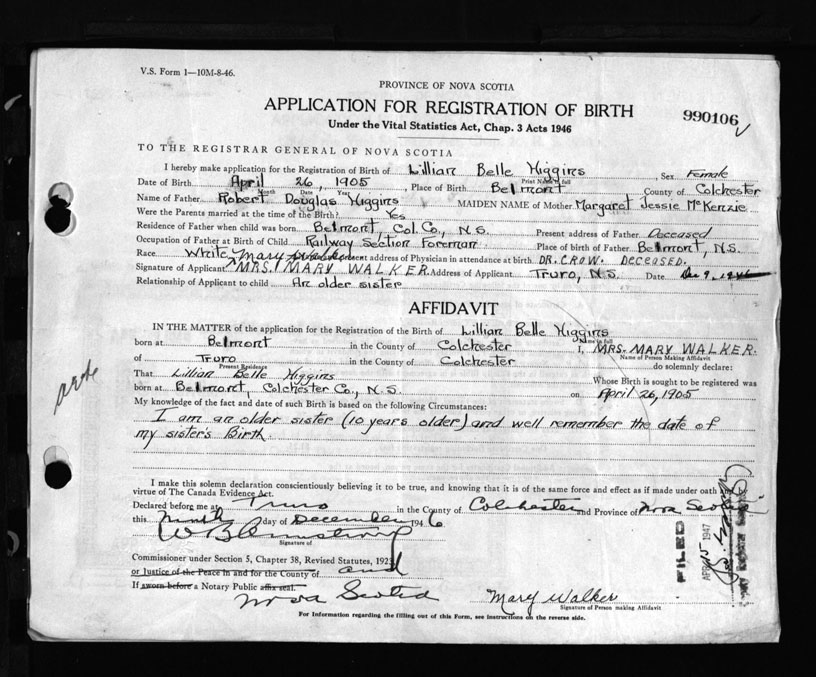 V.S. Form 1—10M-8-46.
PROVINCE OF NOVA SCOTIA
APPLICATION FOR REGISTRATION OF BIRTH
990106
Under the Vital Statistics Act, Chap. 3 Acts 1946
TO THE REGISTRAR GENERAL OF NOVA SCOTIA
I hereby make application for the Registration of Birth of Lillian Belle Higgins Sex Female
Print Name in full
Date of Birth April 26, 1905, Place of Birth Belmont County of Colchester
Month Day Year
Name of Father Robert Douglas Higgins MAIDEN NAME of Mother Margaret Jessie McKenzie
Were the Parents married at the time of the Birth? Yes
Residence of Father when child was born Belmont, Col. Co., N.S. Present address of Father Deceased
Occupation of Father at Birth of Child Railway Section Foreman Place of birth of Father Belmont, N.S.
Race White Mary Walker address of Physician in attendance at birth DR. CROW. DECEASED.
Signature of Applicant MRS. MARY WALKER. Address of Applicant Truro, N.S. Date Dec 9, 1946
Relationship of Applicant to child An older sister
AFFIDAVIT
IN THE MATTER of the application for the Registration of the Birth of Lillian Belle Higgins
Name in full
born at Belmont in the County of Colchester I, MRS. MARY WALKER.
Name of Person Making Affidavit
of Truro in the County of Colchester do solemnly declare:
Present Residence
That Lillian Belle Higgins Whose Birth is sought to be registered was
born at Belmont, Colchester Co., N.S. on April 26, 1905
My knowledge of the fact and date of such Birth is based on the following Circumstances:
I am an older sister (10 years older) and well remember the date of
my sister's Birth.
I make this solemn declaration conscientiously believing it to be true, and knowing that it is of the same force and effect as if made under oath by
virtue of The Canada Evidence Act.
Declared before me at Truro in the County of Colchester and Province of Nova Scotia.
this Ninth day of December 1946
W B Armstrong
Signature of
Commissioner under Section 5, Chapter 38, Revised Statutes, 1923
or Justice of the Peace in and for the County of and
If sworn before a Notary Public affix seal.
Nova Scotia
Mary Walker
Signature of Person making Affidavit
For Information regarding the filling out of this Form, see instructions on the reverse side.
FILED
APR 15 1947